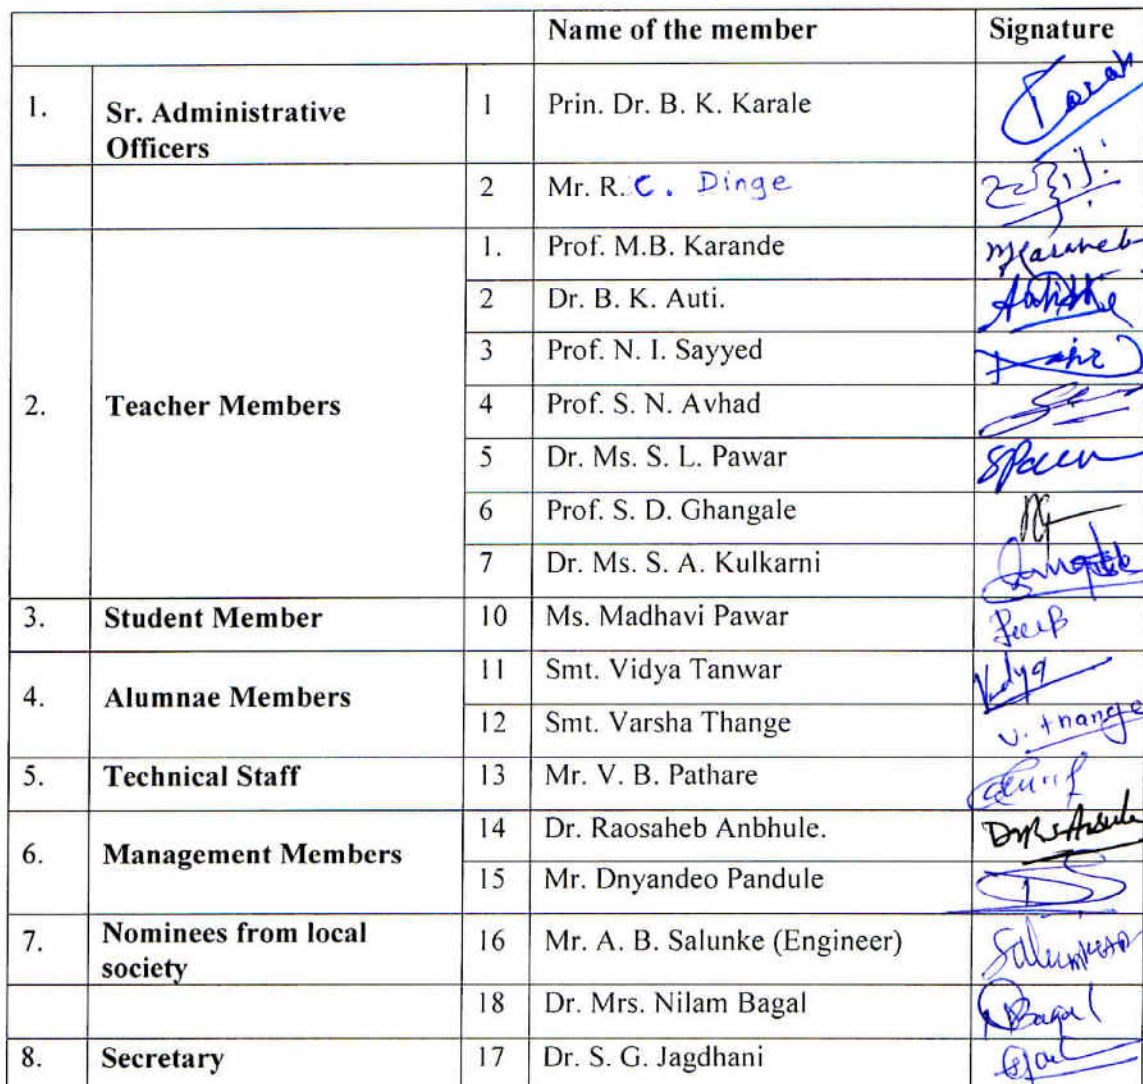 Name of the member Signature
1. Sr. Administrative Officers 1 Prin. Dr. B. K. Karale
2 Mr. R. C. Dinge
1. Prof. M.B. Karande
2 Dr. B. K. Auti.
3 Prof. N. I. Sayyed
2. Teacher Members 4 Prof. S. N. Avhad
5 Dr. Ms. S. L. Pawar
6 Prof. S. D. Ghangale
7 Dr. Ms. S. A. Kulkarni
3. Student Member 10 Ms. Madhavi Pawar
4. Alumnae Members 11 Smt. Vidya Tanwar Vidya
12 Smt. Varsha Thange V. thange
5. Technical Staff 13 Mr. V. B. Pathare
6. Management Members 14 Dr. Raosaheb Anbhule.
15 Mr. Dnyandeo Pandule
7. Nominees from local society 16 Mr. A. B. Salunke (Engineer)
18 Dr. Mrs. Nilam Bagal Bagal
8. Secretary 17 Dr. S. G. Jagdhani